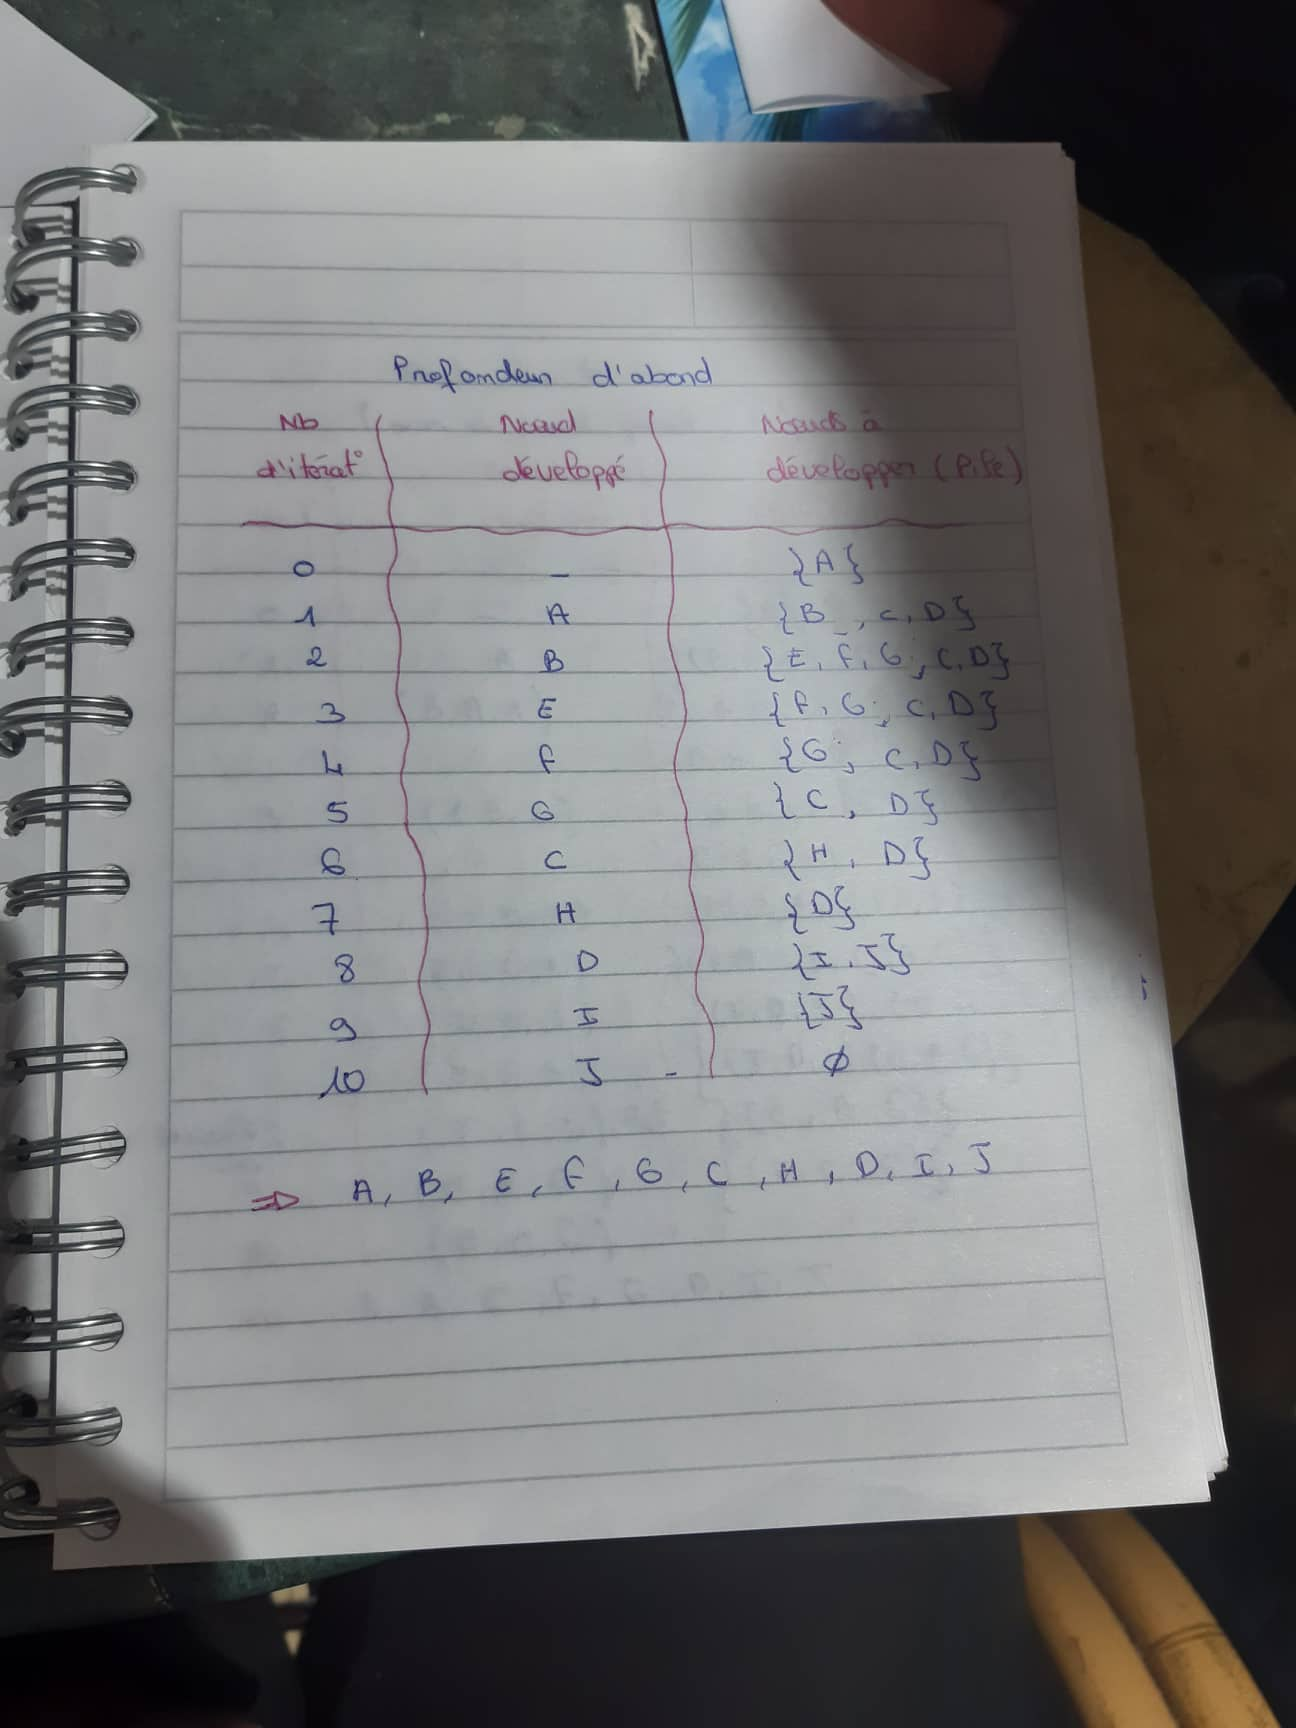 Profondeur d'abord
Nb d'itérat° Nœud développé Nœuds à développer (Pile)
0 – {A}
1 A {B, C, D}
2 B {E, F, G, C, D}
3 E {F, G, C, D}
4 F {G, C, D}
5 G {C, D}
6 C {H, D}
7 H {D}
8 D {I, J}
9 I {J}
10 J - ∅
⇒ A, B, E, F, G, C, H, D, I, J